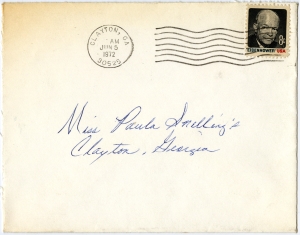 CLAYTON, GA
AM
JUN 5
1972
30525
8c
EISENHOWER USA
Miss Paula Snelling's
Clayton, Georgia